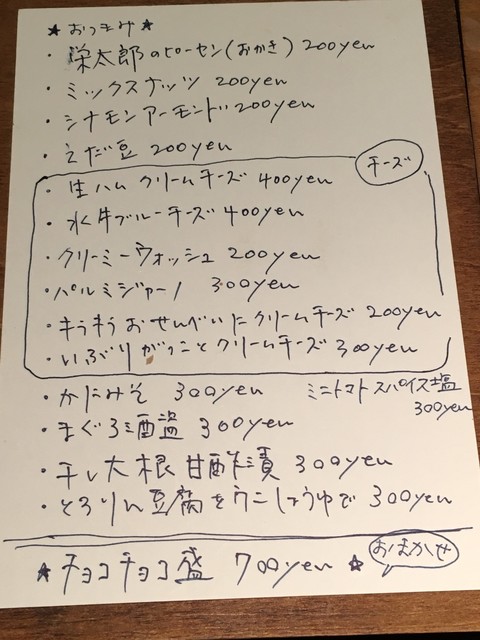 ★おつまみ★
・栄太郎のピーセン(おかき) 200yen
・ミックスナッツ 200yen
・シナモンアーモンド 200yen
・えだ豆 200yen
チーズ
・生ハムクリームチーズ 400yen
・水牛ブルーチーズ 400yen
・クリーミーウォッシュ 200yen
・パルミジャーノ 300yen
・キラキラおせんべいにクリームチーズ 200yen
・いぶりがっことクリームチーズ 300yen
・かにみそ 300yen
ミニトマトスパイス塩
300yen
・まぐろ酒盗 300yen
・干し大根甘酢漬 300yen
・とろりん豆腐をウニしょうゆで 300yen
★チョコチョコ盛 700yen★
おまかせ